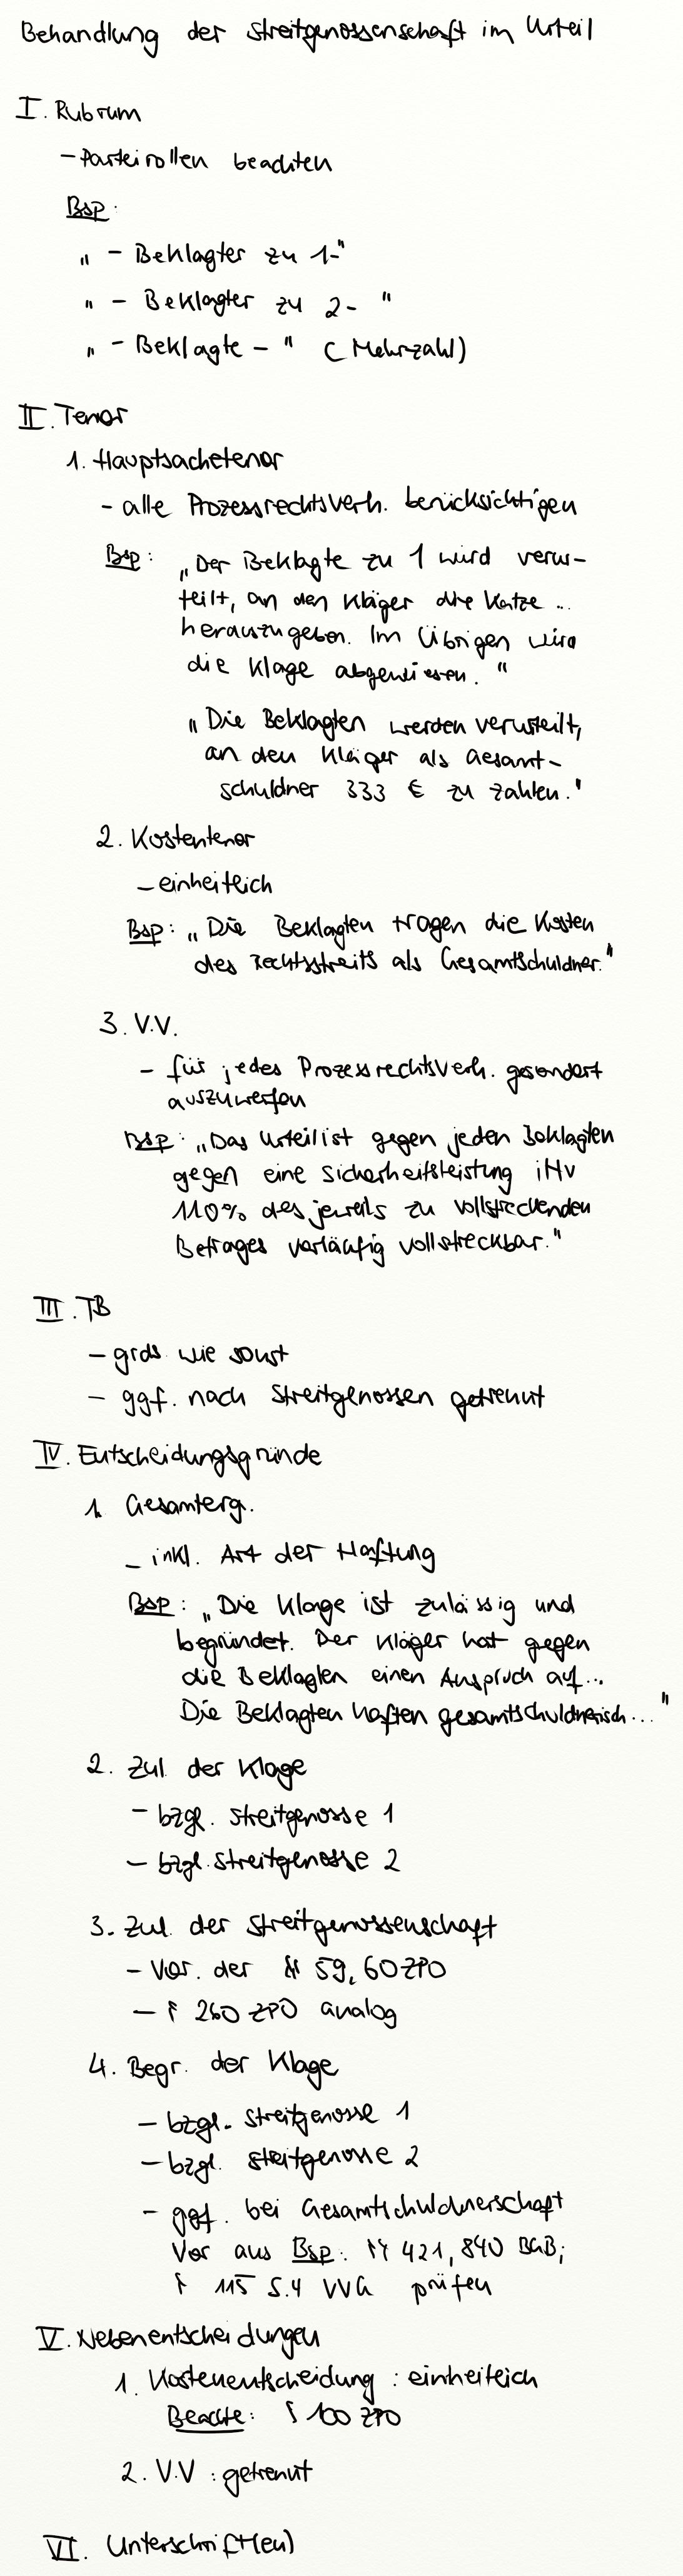 Behandlung der Streitgenossenschaft im Urteil
I. Rubrum
- Parteirollen beachten
Bsp:
„ - Beklagter zu 1-"
„ - Beklagter zu 2- "
„ - Beklagte - " (Mehrzahl)
II. Tenor
1. Hauptsachetenor
- alle Prozessrechtsverh. berücksichtigen
Bsp: „Der Beklagte zu 1 wird verur-
teilt, an den Kläger die Katze ...
herauszugeben. Im Übrigen wird
die Klage abgewiesen. "
„Die Beklagten werden verurteilt,
an den Kläger als Gesamt-
schuldner 333 € zu zahlen."
2. Kostentenor
- einheitlich
Bsp: „Die Beklagten tragen die Kosten
des Rechtsstreits als Gesamtschuldner."
3. V.V.
- für jedes Prozessrechtsverh. gesondert
auszuwerfen
Bsp: „Das Urteil ist gegen jeden Beklagten
gegen eine Sicherheitsleistung iHv
110% des jeweils zu vollstreckenden
Betrages vorläufig vollstreckbar."
III. TB
- grds. wie sonst
- ggf. nach Streitgenossen getrennt
IV. Entscheidungsgründe
1. Gesamterg.
- inkl. Art der Haftung
Bsp: „Die Klage ist zulässig und
begründet. Der Kläger hat gegen
die Beklagten einen Anspruch auf...
Die Beklagten haften gesamtschuldnerisch..."
2. Zul. der Klage
- bzgl. Streitgenosse 1
- bzgl. Streitgenosse 2
3. Zul. der Streitgenossenschaft
- Vor. der §§ 59, 60 ZPO
- § 260 ZPO analog
4. Begr. der Klage
- bzgl. Streitgenosse 1
- bzgl. Streitgenosse 2
- ggf. bei Gesamtschuldnerschaft
Vor aus Bsp: §§ 421, 840 BGB;
§ 115 S.4 VVG prüfen
V. Nebenentscheidungen
1. Kostenentscheidung : einheitlich
Beachte: § 100 ZPO
2. V.V : getrennt
VI. Unterschrift(en)